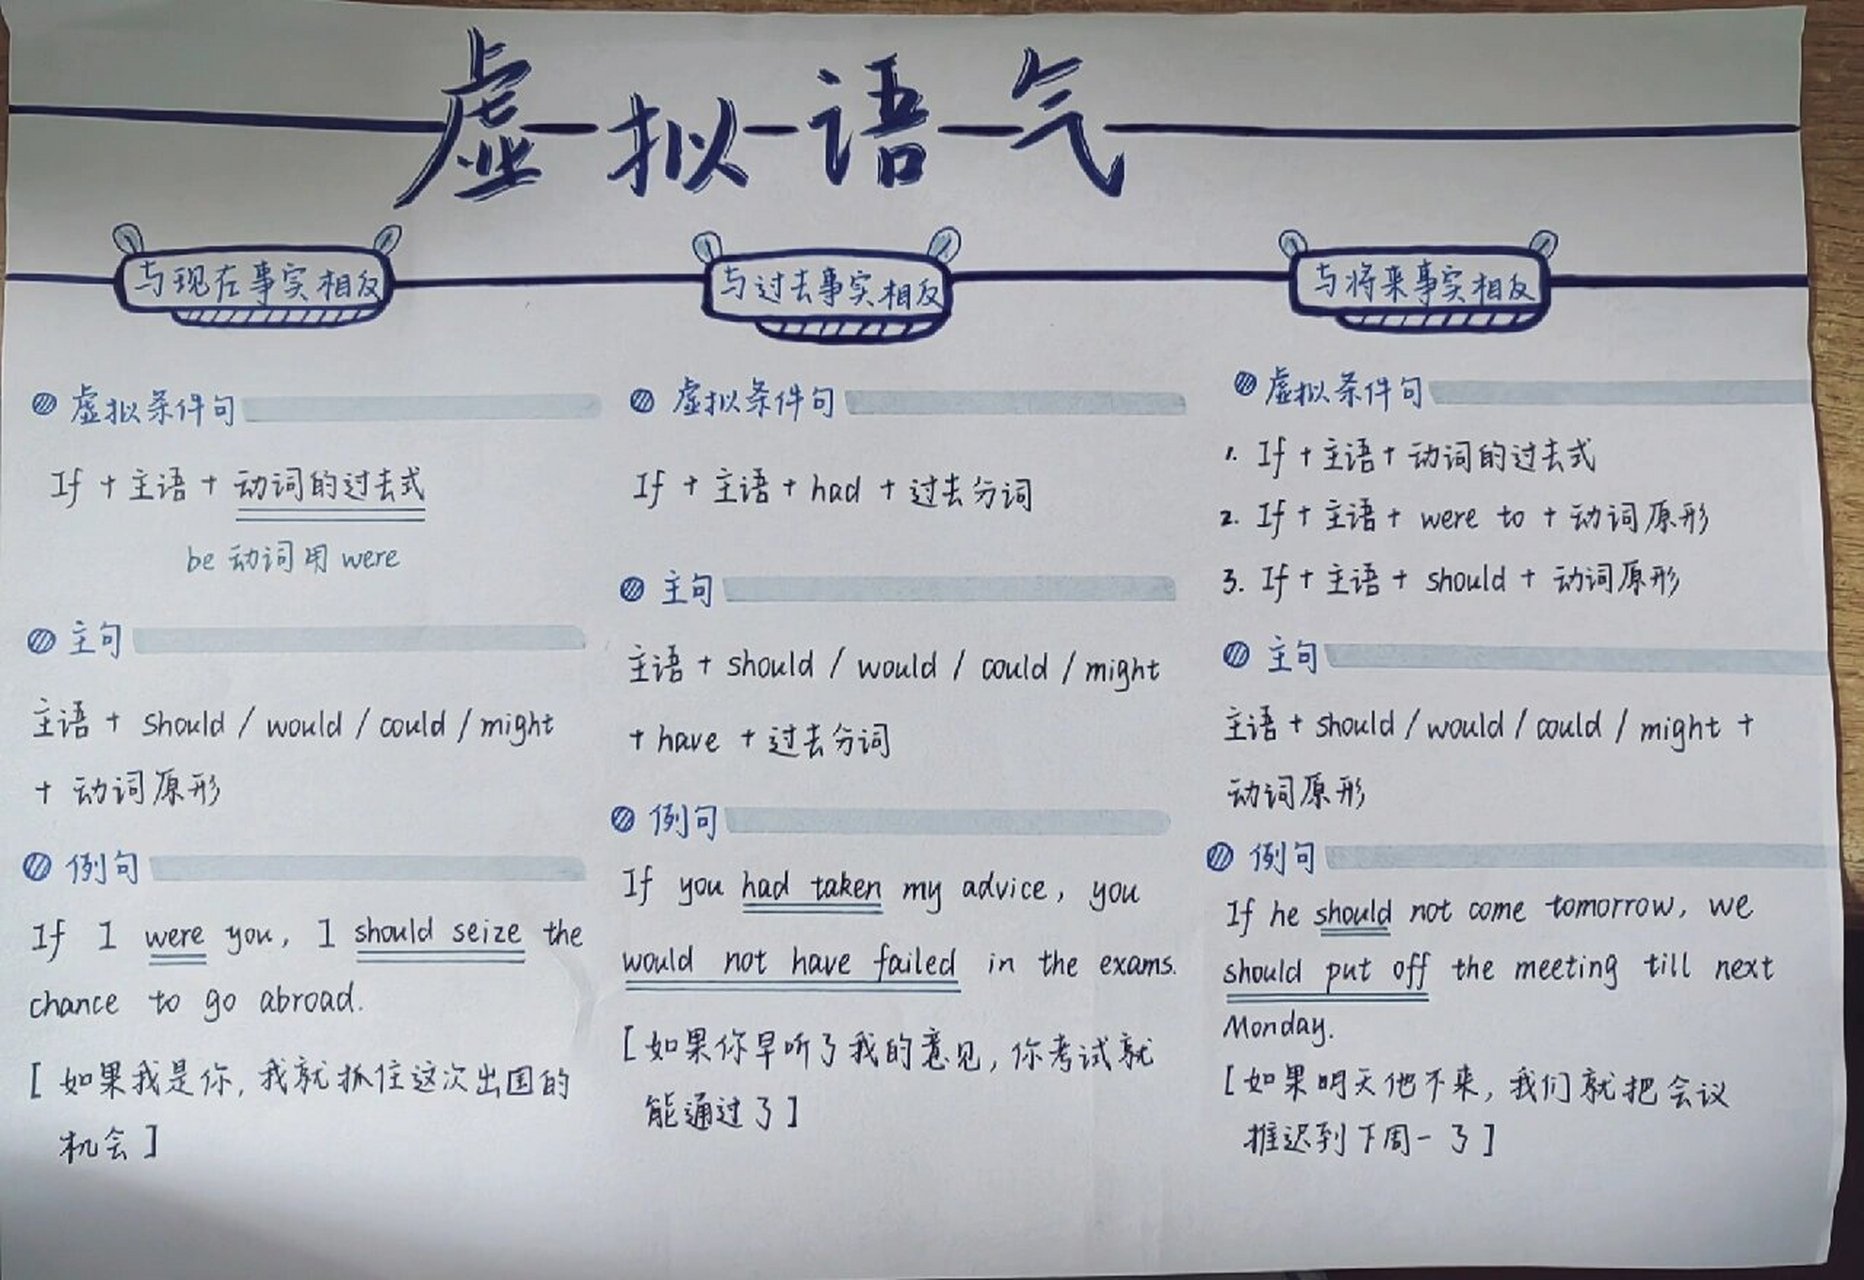 虚拟语气
与现在事实相反
虚拟条件句
If + 主语 + 动词的过去式
be 动词用 were
主句
主语 + should / would / could / might
+ 动词原形
例句
If I were you, I should seize the
chance to go abroad.
[ 如果我是你, 我就抓住这次出国的
机会 ]
与过去事实相反
虚拟条件句
If + 主语 + had + 过去分词
主句
主语 + should / would / could / might
+ have + 过去分词
例句
If you had taken my advice, you
would not have failed in the exams.
[ 如果你早听了我的意见, 你考试就
能通过了 ]
与将来事实相反
虚拟条件句
1. If + 主语 + 动词的过去式
2. If + 主语 + were to + 动词原形
3. If + 主语 + should + 动词原形
主句
主语 + should / would / could / might +
动词原形
例句
If he should not come tomorrow, we
should put off the meeting till next
Monday.
[ 如果明天他不来, 我们就把会议
推迟到下周一了 ]